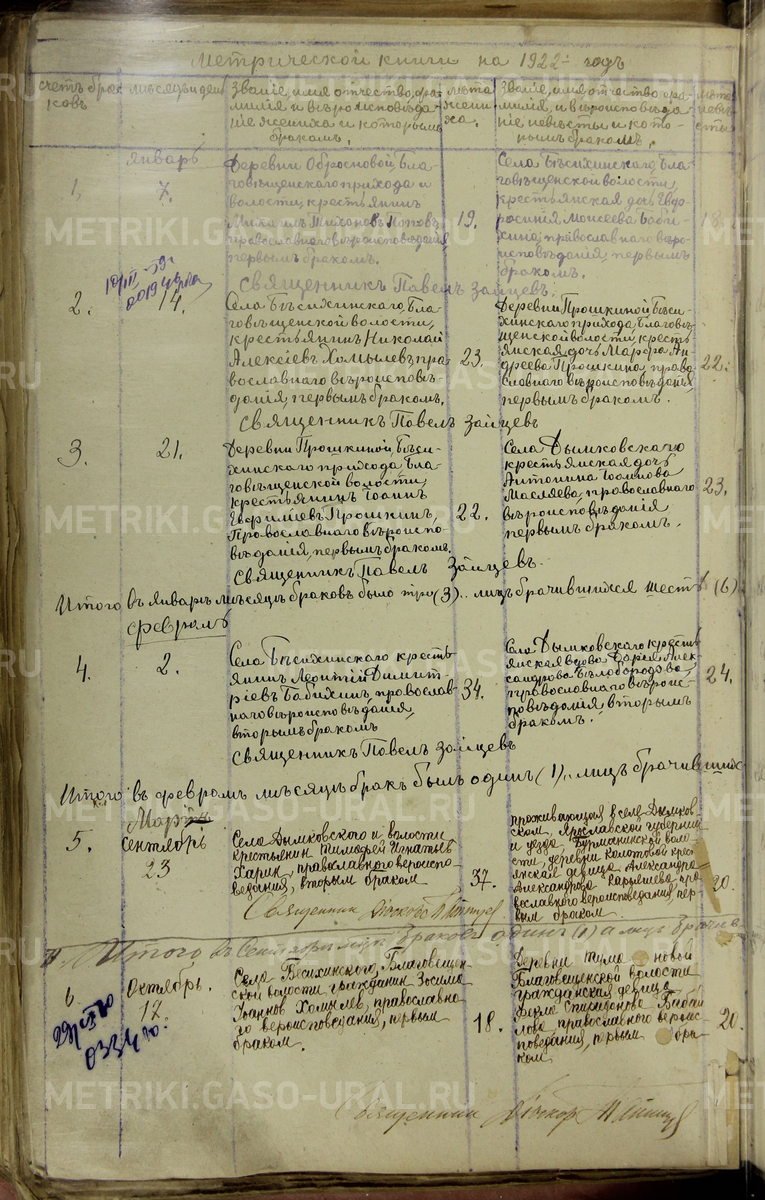 Метрической книги на 1922 годъ
счетъ браковъ
мѣсяцъ и день
Званіе, имя отчество, фамилія и вѣроисповѣданіе жениха и которымъ бракомъ.
лѣта жениха.
Званіе, имя отчество фамилія, и вѣроисповѣданіе невѣсты и которымъ бракомъ.
лѣта невѣсты
Январь
1.
7.
Деревни Обросновой, Бла-
говѣщенскаго прихода и
волости, крестьянинъ
Михаилъ Тихоновъ Поповъ,
православнаго вѣроисповѣданія
первымъ бракомъ.
19.
Села Бѣсихинскаго, Бла-
говѣщенской волости,
крестьянская дочь Евф-
росинія Моисеева Баби-
хина, православнаго вѣро-
исповѣданія, первымъ
бракомъ.
18
Священникъ Павелъ Зайцевъ.
2.
14.
Села Бѣсихинскаго, Бла-
говѣщенской волости,
крестьянинъ Николай
Алексіевъ Хомылевъ, пра-
вославнаго вѣроисповѣ-
данія, первымъ бракомъ.
23.
Деревни Прошкиной, Бѣси-
хинскаго прихода, Благовѣ-
щенской волости, кресть-
янская дочь Марѳа Ан-
дреева Прошкина, право-
славнаго вѣроисповѣданія,
первымъ бракомъ.
22.
Священникъ Павелъ Зайцевъ
3.
21.
Деревни Прошкиной, Бѣси-
хинскаго прихода, Бла-
говѣщенской волости,
крестьянинъ Іоаннъ
Евфиміевъ Прошкинъ,
Православнаго вѣроиспо-
вѣданія, первымъ бракомъ.
22.
Села Дымковскаго
крестьянская дочь
Антонина Іоаннова
Масляева, православнаго
вѣроисповѣданія
первымъ бракомъ.
23.
Священникъ Павелъ Зайцевъ.
Итого въ январѣ мѣсяцѣ браковъ было три (3).. лицъ брачившихся шесть (6)
февраль
4.
2.
Села Бѣсихинскаго кресть-
янинъ Леонтій Димит-
ріевъ Бабихинъ, православ-
наго вѣроисповѣданія,
вторымъ бракомъ
34.
Села Дымковскаго кресть-
янская вдова Дарія Алек-
сандрова Бѣлобородова,
православнаго вѣроис-
повѣданія, вторымъ
бракомъ.
24.
Священникъ Павелъ Зайцевъ
Итого въ февралѣ мѣсяцѣ бракъ былъ одинъ (1).. лицъ брачивших
Мартъ
5.
Сентябрь
23
Села Дымковского и волости
крестьянин Тимофей Игнатьев
Харин, православного вероиспо-
ведания, вторым браком
37.
проживающая в селе Дымков-
ском, Ярославской губернии
и уезда, Бурмакинской воло-
сти, деревни крест-
янская девица Александра
Александрова Карышева, пра-
вославного вероисповедания, пер-
вым браком
20.
Священник
Итого в Сентябре м-це Браков один (1) а лиц Брачив
6.
Октябрь.
12.
Села Бесихинского, Благовещен-
ской волости гражданин Зосима
Іоаннов Хомылев, православно-
го вероисповедания, первым
браком.
18.
Деревни новой
Благовещенской волости
гражданская девица
Спиридонова Бабай-
лова, православного вероис-
поведания, первым бра-
ком
20.
Священник
METRIKI.GASO-URAL.RU